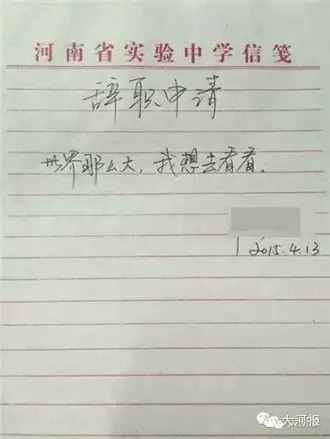 河南省实验中学信笺
辞职申请
世界那么大，我想去看看。
2015.4.13
大河报